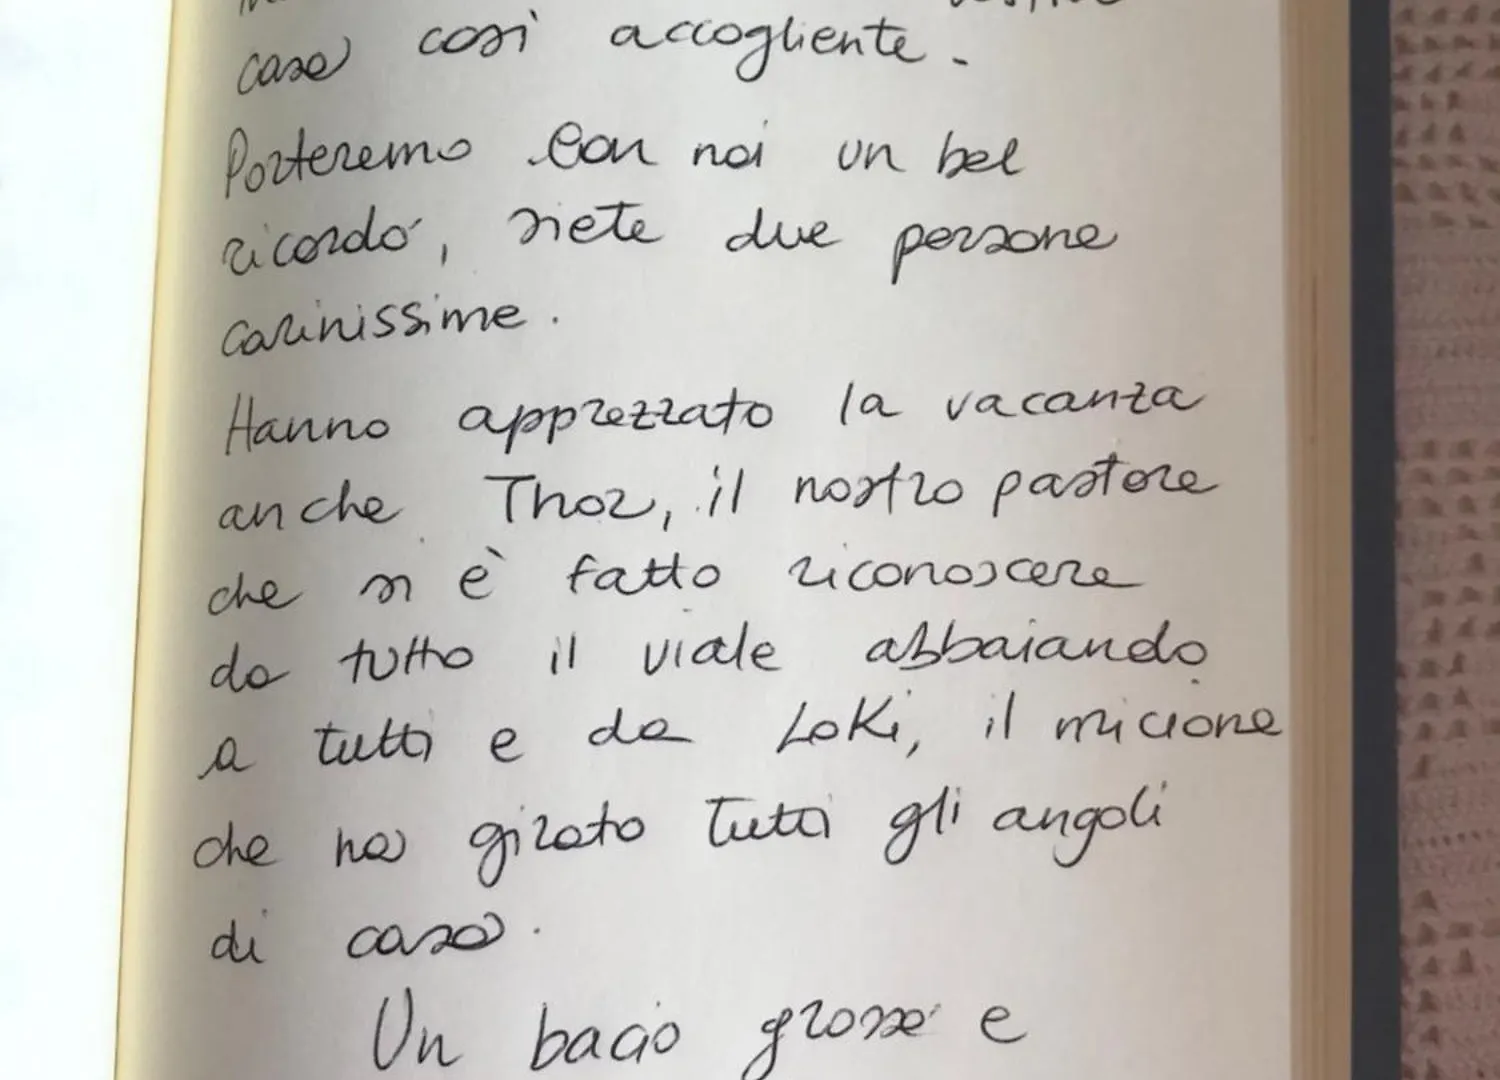 casa così accogliente.
Porteremo con noi un bel
ricordo, siete due persone
carinissime.
Hanno apprezzato la vacanza
anche Thor, il nostro pastore
che si è fatto riconoscere
da tutto il viale abbaiando
a tutti e da Loki, il micione
che ha girato tutti gli angoli
di casa.
Un bacio grosso e